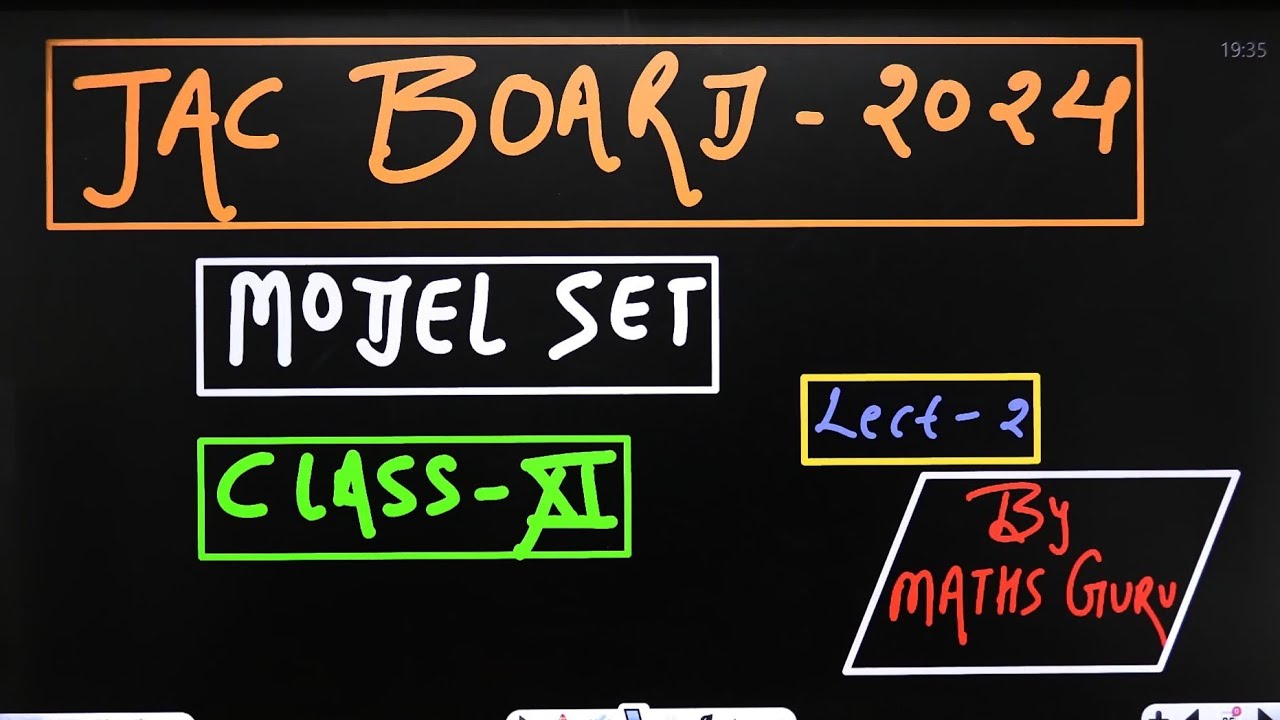 19:35
JAC BOARD - 2024
MODEL SET
Lect - 2
CLASS - XI
By
MATHS GURU